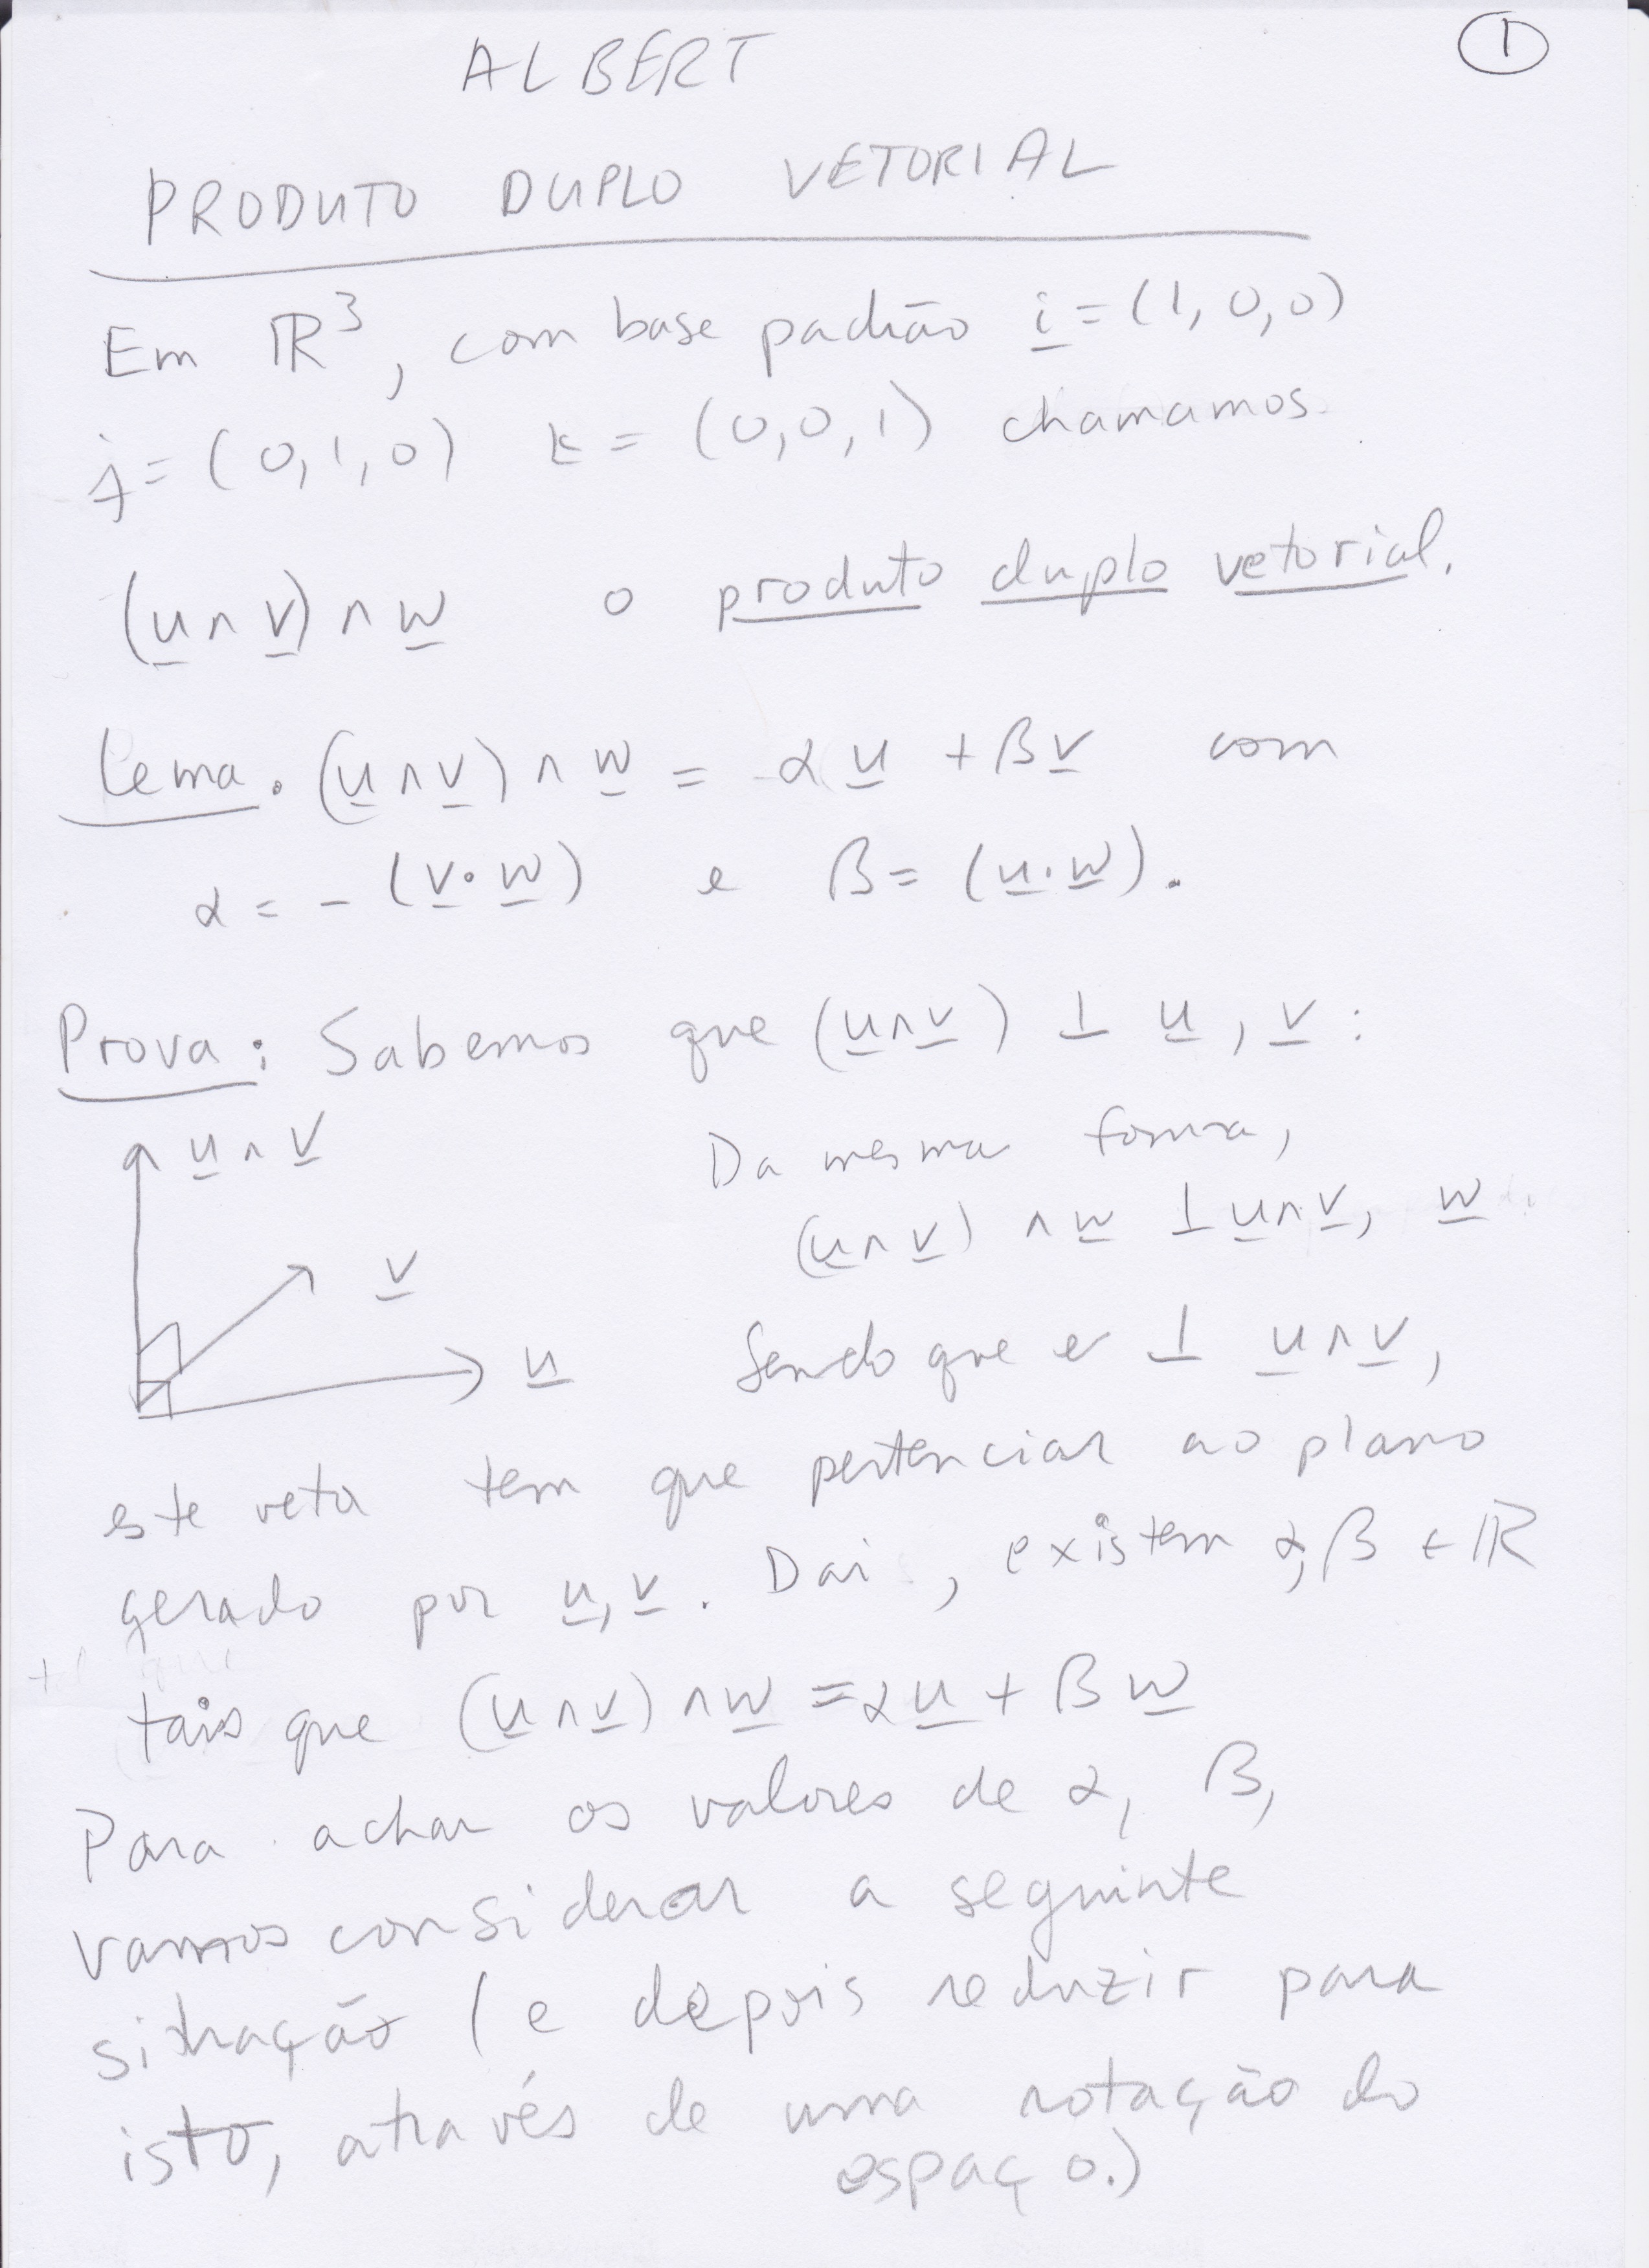 ALBERT
1
PRODUTO DUPLO VETORIAL
Em ℝ³, com base padrão i = (1, 0, 0)
j = (0, 1, 0) k = (0, 0, 1) chamamos
(u ∧ v) ∧ w o produto duplo vetorial.
Lema. (u ∧ v) ∧ w = α u + β v com
α = - (v · w) e β = (u · w).
Prova: Sabemos que (u ∧ v) ⊥ u, v:
u ∧ v
v
u
Da mesma forma,
(u ∧ v) ∧ w ⊥ u ∧ v, w
Sendo que é ⊥ u ∧ v,
este vetor tem que pertenciar ao plano
gerado por u, v. Dai, existem α, β ∈ ℝ
tais que (u ∧ v) ∧ w = α u + β w
Para achar os valores de α, β,
vamos considerar a seguinte
situação (e depois reduzir para
isto, através de uma rotação do
espaço.)